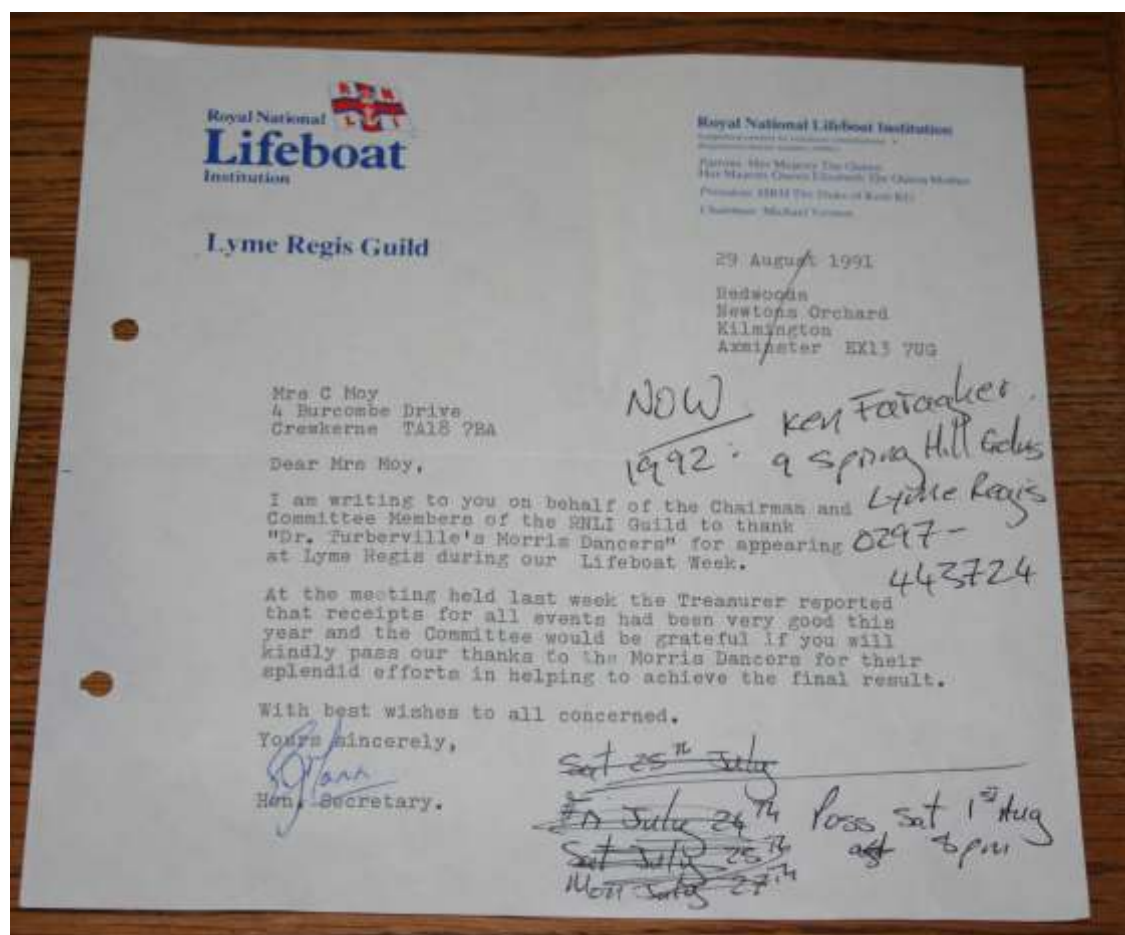 Royal National
Lifeboat
Institution
R N
L I
Lyme Regis Guild
Royal National Lifeboat Institution
Patrons: Her Majesty The Queen
Her Majesty Queen Elizabeth The Queen Mother
President: HRH The Duke of Kent KG
Chairman: Michael Vernon
29 August 1991
Redwoods
Newtons Orchard
Kilmington
Axminster EX13 7UG
Mrs C Moy
4 Burcombe Drive
Crewkerne TA18 7BA
NOW
1992:
Ken Faragher.
9 Spring Hill Gdns
Lyme Regis
0297-
443724
Dear Mrs Moy,
I am writing to you on behalf of the Chairman and
Committee Members of the RNLI Guild to thank
"Dr. Turberville's Morris Dancers" for appearing
at Lyme Regis during our Lifeboat Week.
At the meeting held last week the Treasurer reported
that receipts for all events had been very good this
year and the Committee would be grateful if you will
kindly pass our thanks to the Morris Dancers for their
splendid efforts in helping to achieve the final result.
With best wishes to all concerned.
Yours sincerely,
Hon. Secretary.
Sat 25th July
Fri July 24th
Sat July 25th
Mon July 27th
Poss Sat 1st Aug
8pm